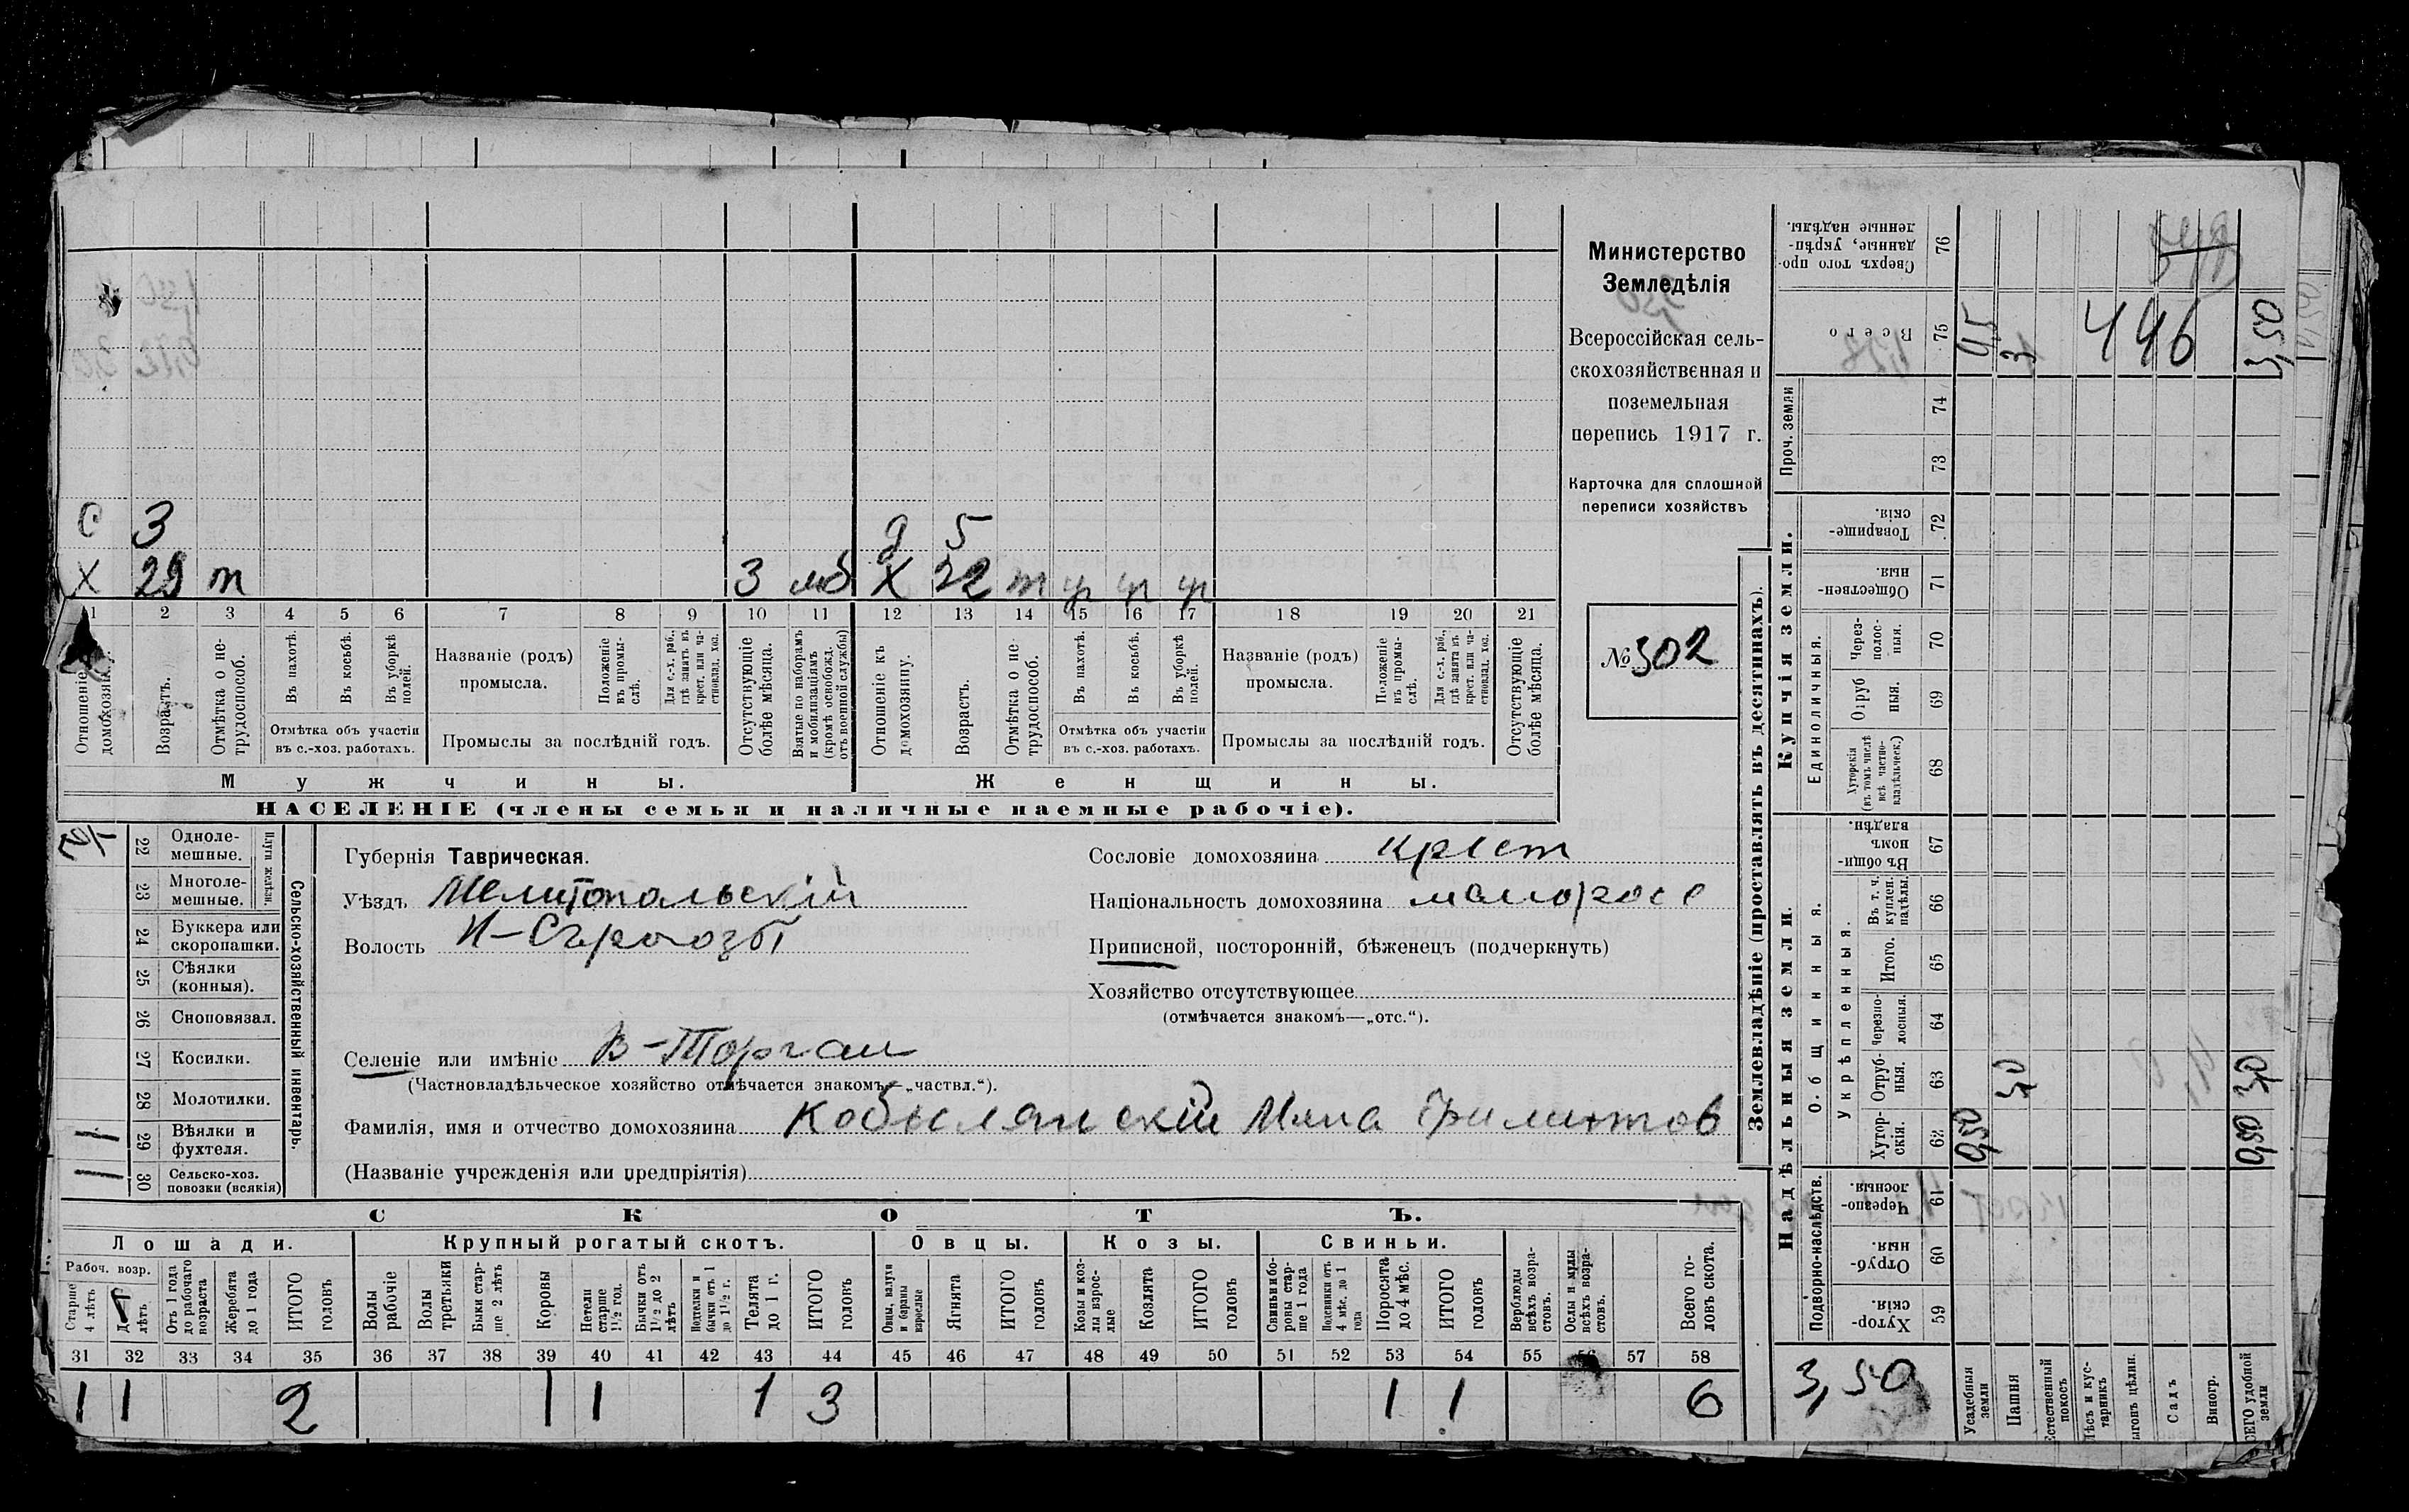 Министерство
Земледѣлія
Всероссійская сель-
скохозяйственная и
поземельная
перепись 1917 г.
Карточка для сплошной
переписи хозяйствъ
№ 302
С 3
д 5
Х 29 т 3 мб Х 22 т ур ур ур
1 2 3 4 5 6 7 8 9 10 11 12 13 14 15 16 17 18 19 20 21
Отношеніе къ домохозяину.
Возрастъ.
Отмѣтка о не-трудоспособ.
Въ пахотѣ.
Въ косьбѣ.
Въ уборкѣ полей.
Отмѣтка объ участіи
въ с.-хоз. работахъ.
Названіе (родъ)
промысла.
Положеніе въ промы-слѣ.
Для с.-х. раб., гдѣ занятъ въ крест. или ча-стновлад. хоз.
Промыслы за послѣдній годъ.
Отсутствующіе болѣе мѣсяца.
Взятые по наборамъ и мобилизаціямъ (кромѣ освобожд. отъ военной службы)
Отношеніе къ домохозяину.
Возрастъ.
Отмѣтка о не трудоспособ.
Въ пахотѣ.
Въ косьбѣ.
Въ уборкѣ полей.
Отмѣтка объ участіи
въ с.-хоз. работахъ.
Названіе (родъ)
промысла.
Положеніе въ промы-слѣ.
Для с.-х. раб., гдѣ занята въ крест. или ча-стновлад. хоз.
Промыслы за послѣдній годъ.
Отсутствующіе болѣе мѣсяца.
Мужчины. Женщины.
НАСЕЛЕНІЕ (члены семьи и наличные наемные рабочіе).
Сельско-хозяйственный инвентарь.
Плуги желѣзн.
22 Одноле-мешные.
23 Многоле-мешные.
24 Буккера или скоропашки.
25 Сѣялки (конныя).
26 Сноповязал.
27 Косилки.
28 Молотилки.
29 Вѣялки и фухтеля. 1
30 Сельско-хоз. повозки (всякія) 1
Губернія Таврическая.
Уѣздъ Мелитопольскій
Волость Н-Сѣрогозы
Селеніе или имѣніе В-Торгаи
(Частновладѣльческое хозяйство отмѣчается знакомъ—„частвл.“).
Фамилія, имя и отчество домохозяина Кобылянскій
(Названіе учрежденія или предпріятія)
Сословіе домохозяина крест
Національность домохозяина малоросс
Приписной, посторонній, бѣженецъ (подчеркнуть)
Хозяйство отсутствующее
(отмѣчается знакомъ—„отс.“).
СКОТЪ.
Лошади. Крупный рогатый скотъ. Овцы. Козы. Свиньи.
Рабоч. возр.
Старше 4 лѣтъ
лѣтъ
Отъ 1 года до рабочаго возраста
Жеребята до 1 года
ИТОГО головъ
Волы рабочіе
Волы третьяки
Быки стар-ше 2 лѣтъ
Коровы
Нетели старше 1½ год.
Бычки отъ 1½ до 2 лѣтъ
Подтелки и бычки отъ 1 до 1½ г.
Телята до 1 г.
ИТОГО головъ
Овцы, валухи и бараны взрослые
Ягнята
ИТОГО головъ
Козы и коз-лы взрос-лые
Козлята
ИТОГО головъ
Свиньи и бо-ровы стар-ше 1 года
Подсвинки отъ 4 мѣс. до 1 года
Поросята до 4 мѣс.
ИТОГО головъ
Верблюды всѣхъ возра-стовъ.
Ослы и мулы всѣхъ возра-стовъ.
Всего го-ловъ скота.
31 32 33 34 35 36 37 38 39 40 41 42 43 44 45 46 47 48 49 50 51 52 53 54 55 56 57 58
1 1 2 1 1 1 3 1 1 6
Землевладѣніе (проставлять въ десятинахъ).
Купчія земли.
Надѣльныя земли.
Сверхъ того про-данные, укрѣп-ленные надѣлы. 76
Всего 75 3 446 3,50
Проч. земли 74
73
Товарище-скія. 72
Обществен-ныя. 71
Единоличныя.
Через-полос-ныя. 70
Отруб-ныя. 69
Хуторскія (въ томъ числѣ всѣ частно-владѣльческ.) 68
Общинныя.
Въ общин-номъ владѣн. 67
Укрѣпленныя.
Въ т. ч. куплен. надѣлы. 66
Итого. 65
Черезпо-лосныя. 64
Отруб-ныя. 63 3,0 3,0
Хутор-скія. 62 0,50 0,50
Подворно-наслѣдств.
Черезпо-лосныя. 61
Отруб-ныя. 60
Хутор-скія. 59
3,50
Усадебныя земли
Пашня
Естественный покосъ
Лѣсъ и кус-тарникъ
ыгонъ цѣлин.
Садъ
Виногр.
СЕГО удобной земли